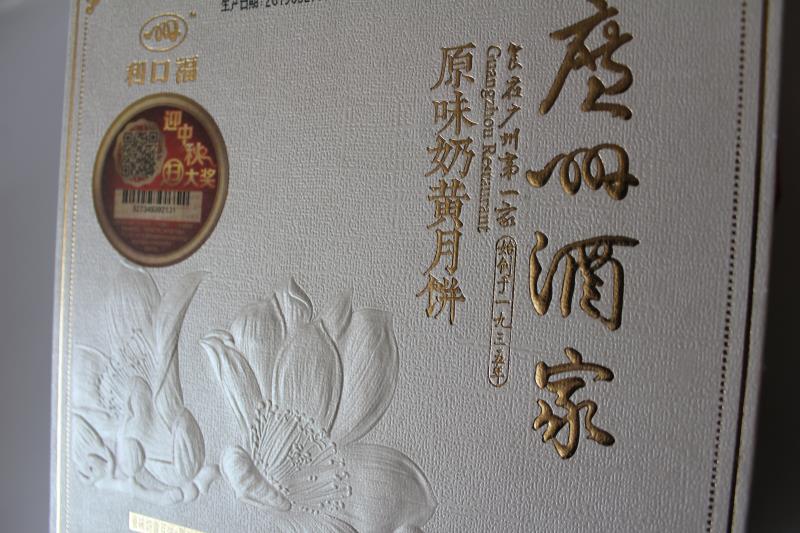 生产日期:
利口福
迎中秋
大奖
廣州酒家
食在广州第一家
始创于一九三五年
Guangzhou Restaurant
原味奶黄月饼